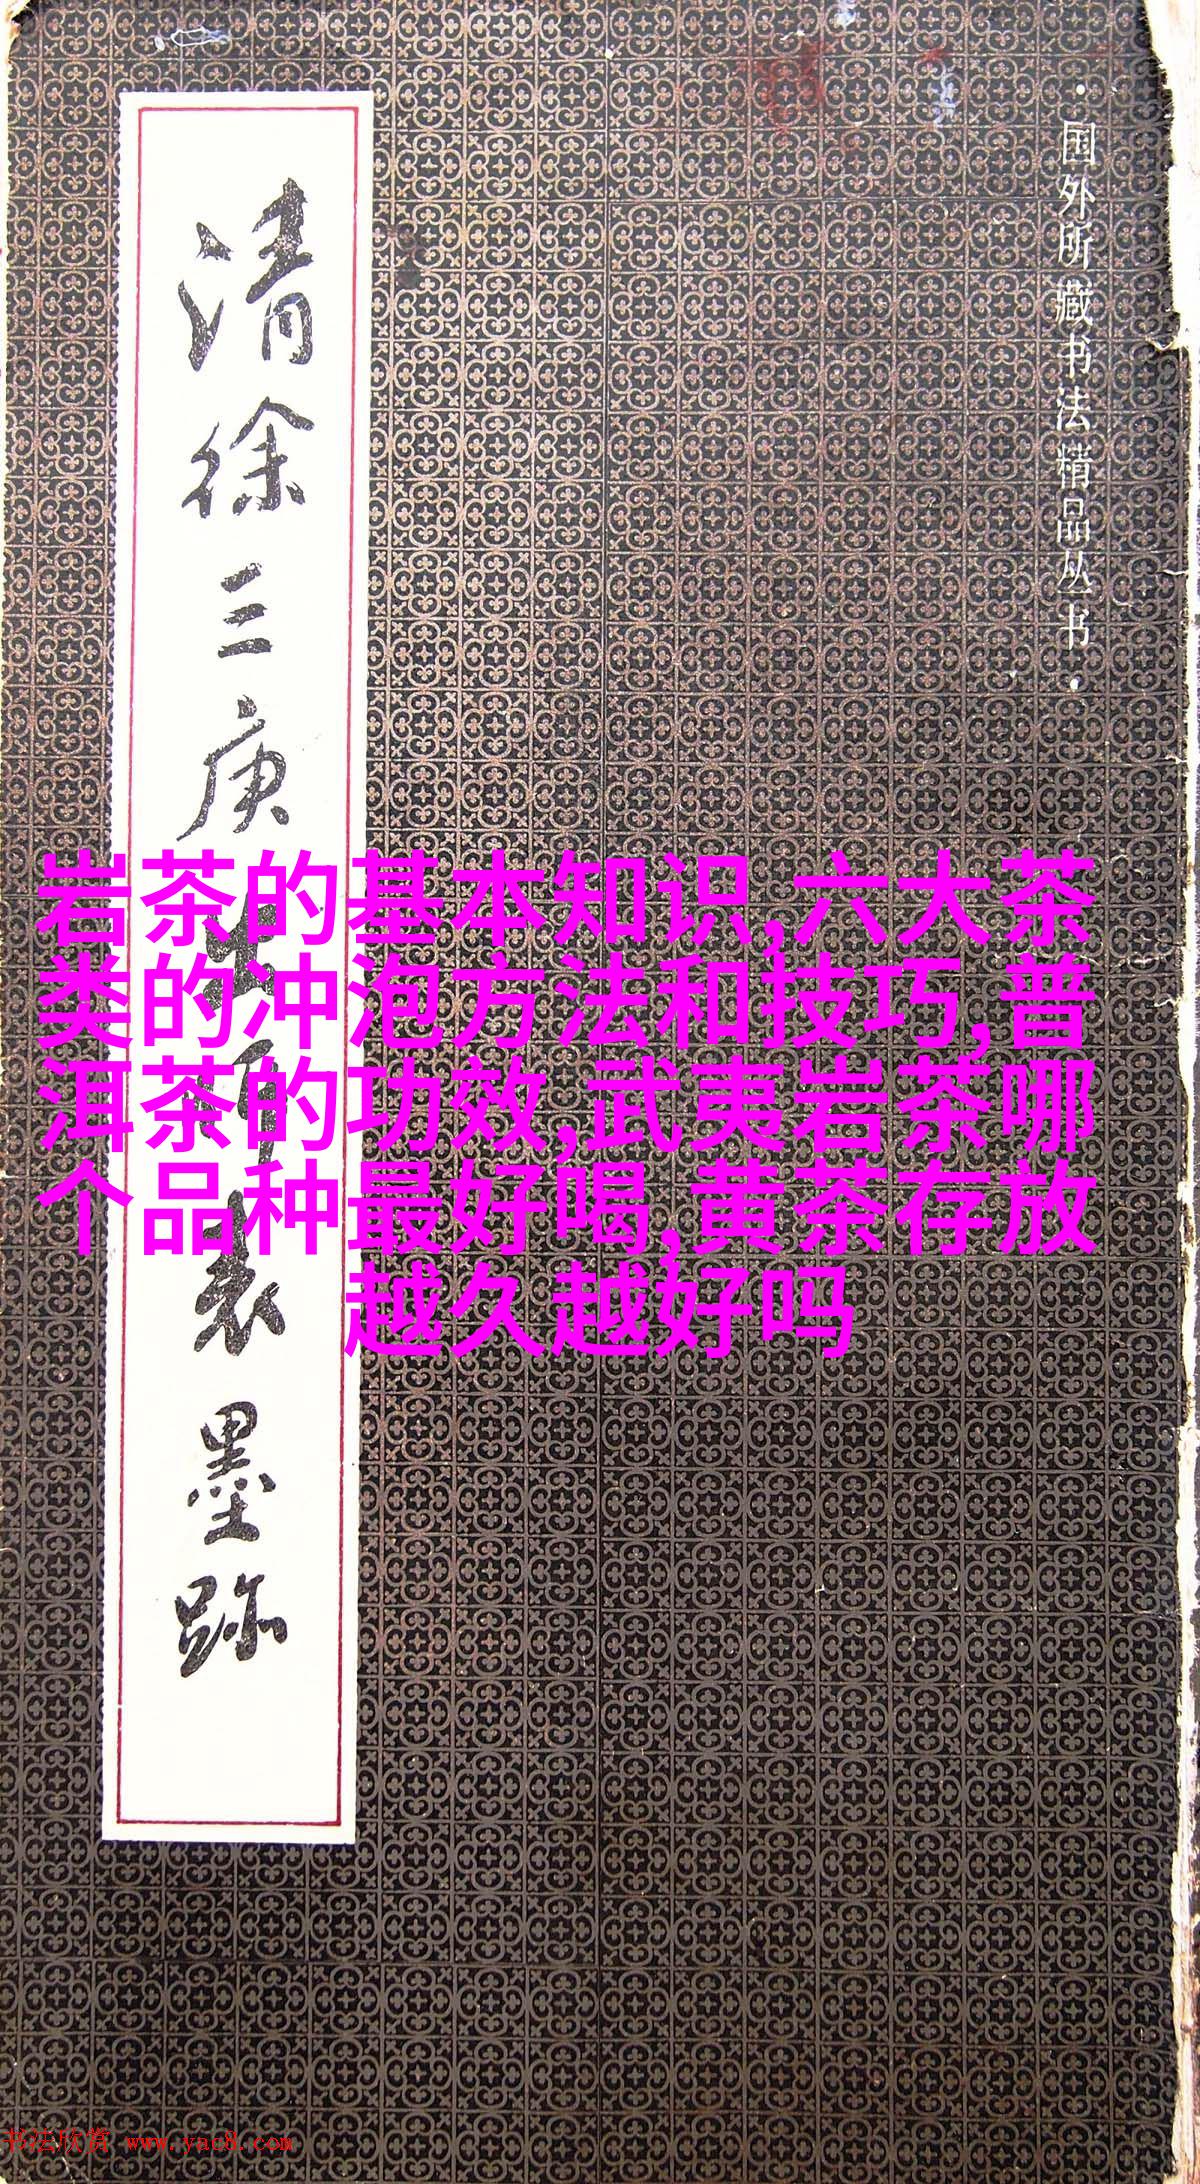 ·国外所藏书法精品丛书·
清徐三庚出师表墨跡
岩茶的基本知识,六大茶
类的冲泡方法和技巧,普
洱茶的功效,武夷岩茶哪
个品种最好喝,黄茶存放
越久越好吗
书法欣赏 www.yac8.com